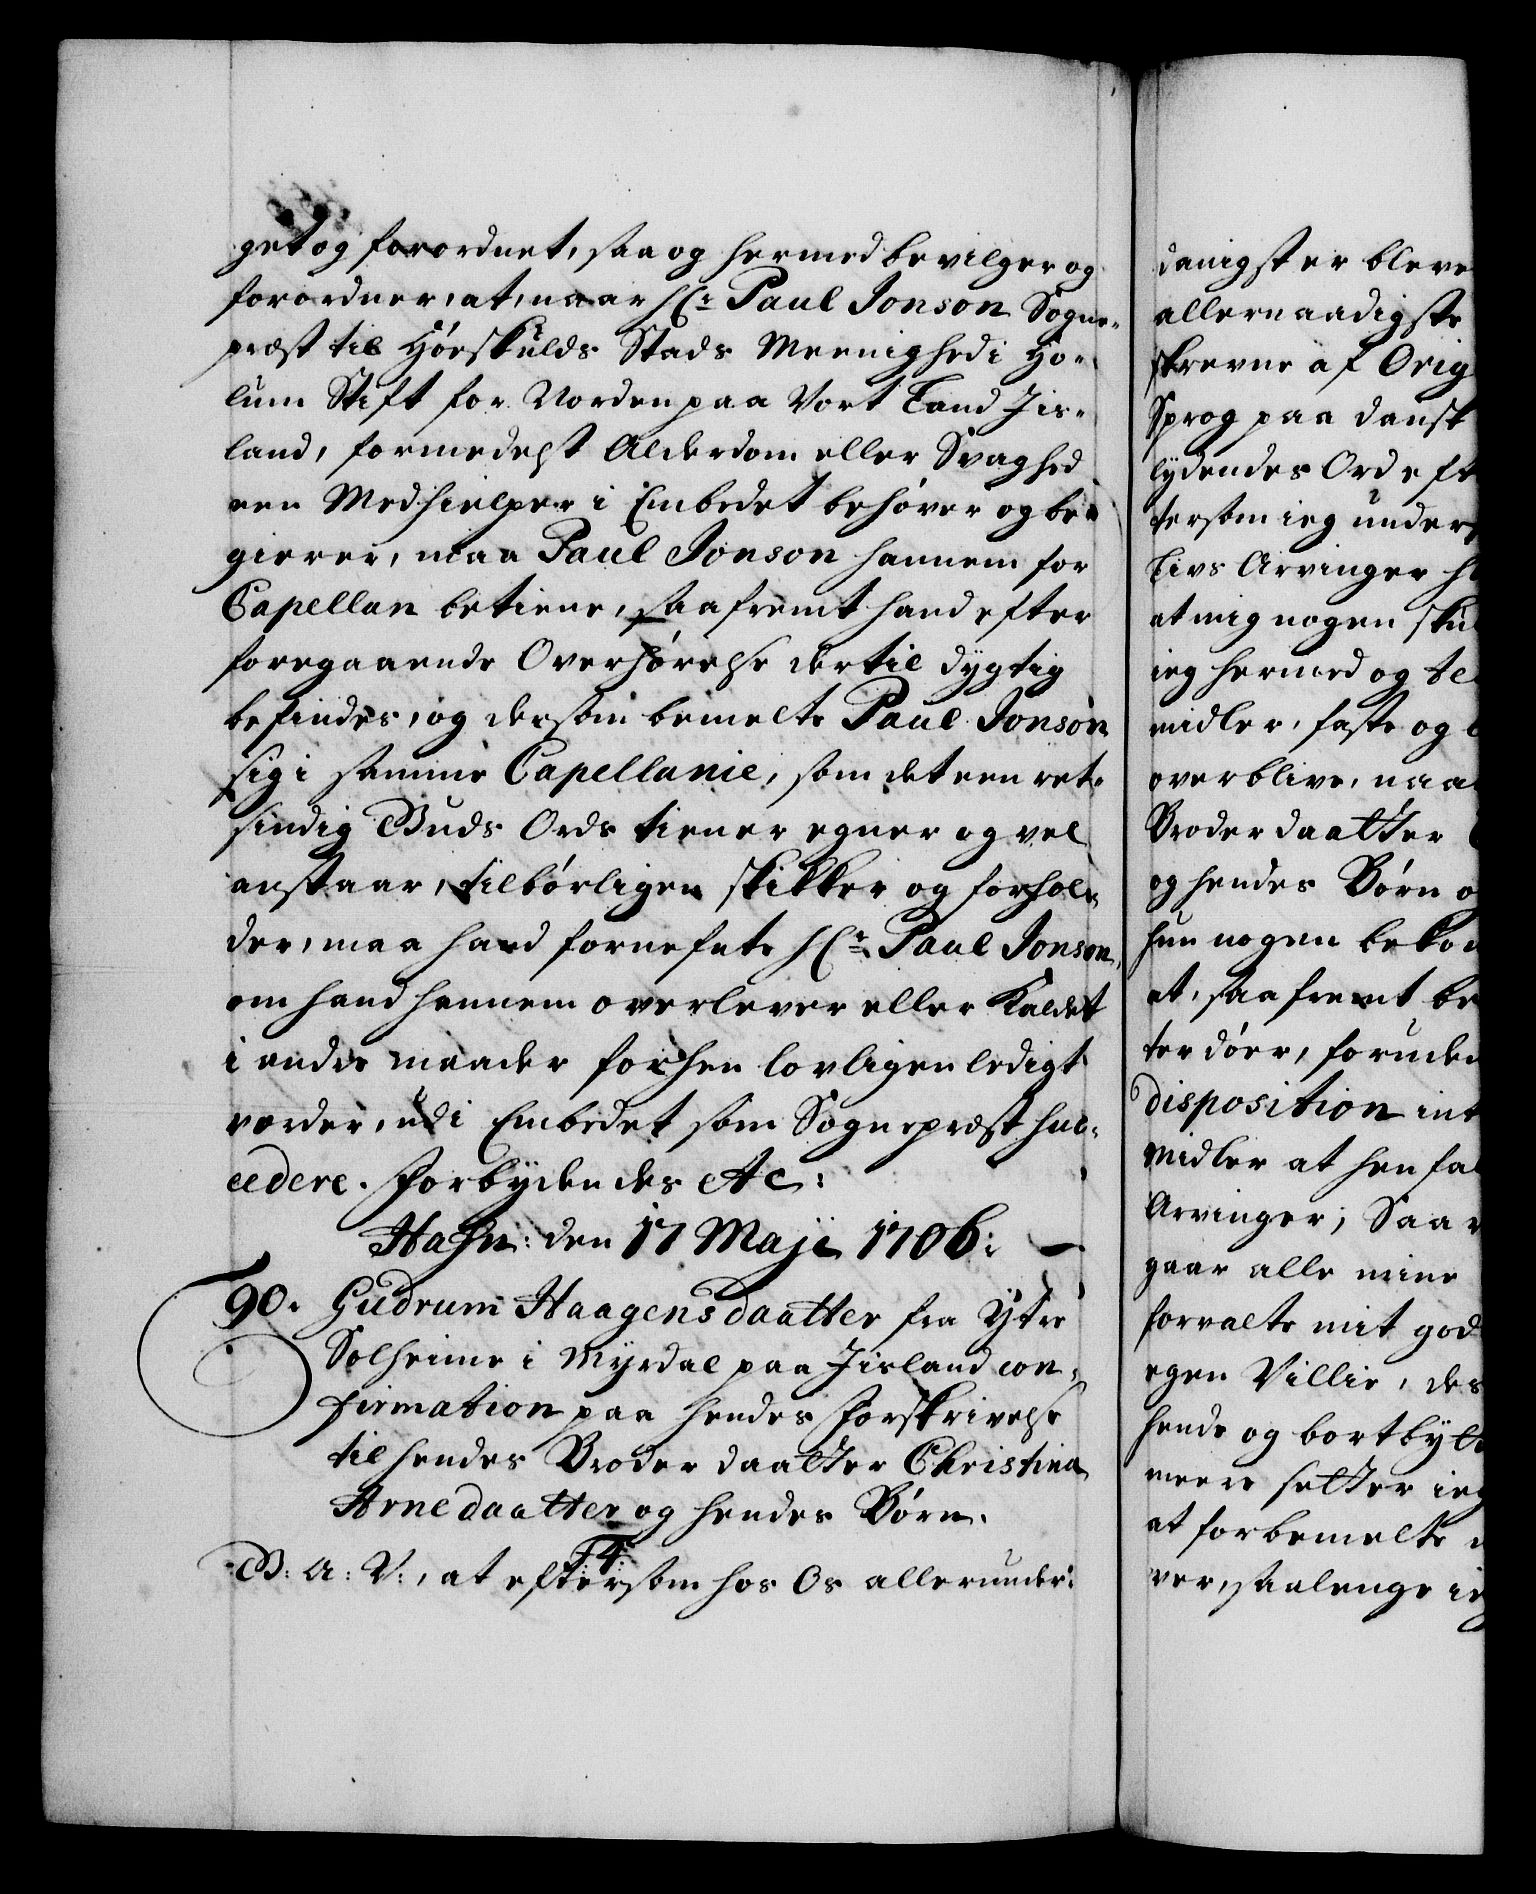 get og forordnet, saa og hermed bevilger og
forordner, at, naar Hr: Paul Jonson Sogne-
præst til Høeskulds Stads Meenighed i Ho-
lum Stift for Norden paa Vort Land Jis-
land, formedelst Alderdom eller Svaghed
een Medhielper i Embedet behøver og be-
gierer, maa Paul Jonson hannem for
Capellan betiene, saafremt hand efter
foregaaende Overhørelse dertil dygtig
befindes, og dersom bemelte Paul Jonson
sig i samme Capellanie, som det een ret-
sindig Guds Ords tiener egner og vel
anstaar, tilbørligen skikker og forhol-
der, maa hand fornefnte Hr: Paul Jonson,
om hand hannem overlever eller Kaldet
i andre maader forhen lovligen ledigt
vorder, udi Embedet som Sognepræst suc-
cedere. Forbydendes Etc:
Hafn: den 17 Maji 1706:
90. Gudrum Haagensdaatter fra Ytre
Solheime i Myrdal paa Jisland con-
firmation paa hendes Forskrivelse
til hendes Broder daatter Christina
Arnedaatter og hendes Børn.
F4:
G: A: V:, at eftersom hos Os allerunder-
danigst er bleve
allernaadigste
skrevne af Orig
Sprog paa dansk
lydendes Ord eft
tersom ieg under
Livs Arvinger h
at mig nogen sku
ieg hermed og te
midler, faste og
overblive, naa
Broder daatter
og hendes Børn o
hun nogen bekom
at, saafremt be
ter døer, foruden
disposition int
Midler at henfal
Arvinger; Saa
gaar alle mine
forvalte mit god
egen Villie, des
hende og bortbytt
meere setter ieg
at forbemelte
ver, saalenge ieg